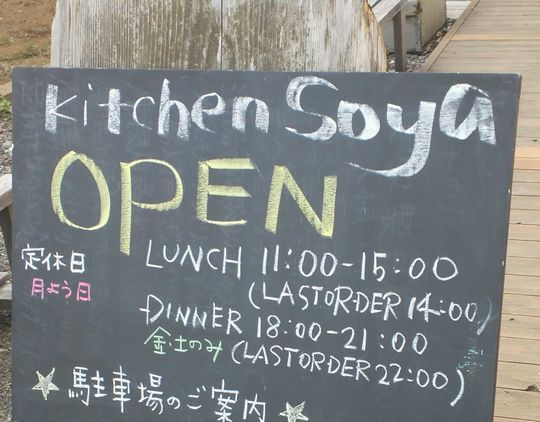 Kitchen Soya
OPEN
定休日
月よう日
LUNCH 11:00-15:00
(LASTORDER 14:00)
DINNER 18:00-21:00
金土のみ (LASTORDER 22:00)
☆駐車場のご案内☆